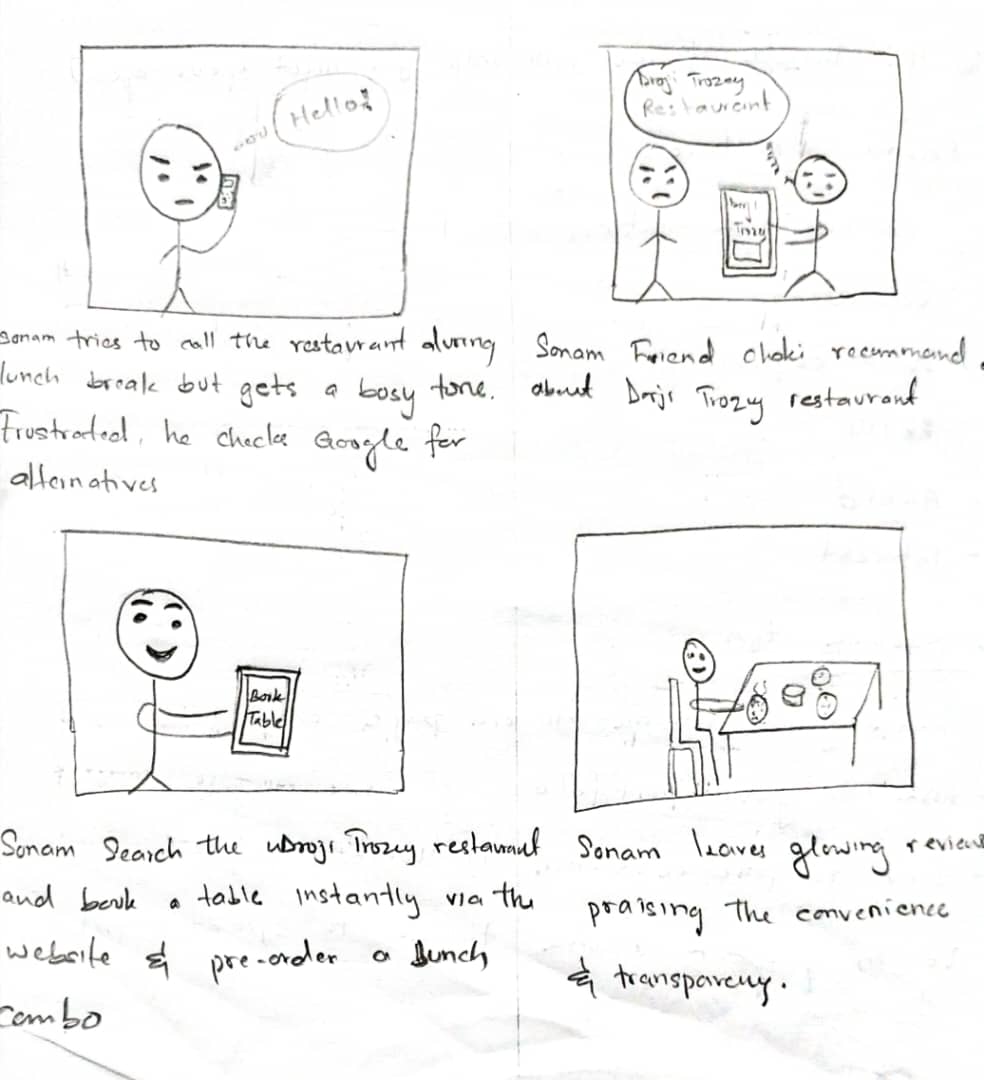 Hello?
Sonam tries to call the restaurant during
lunch break but gets a bosy tone.
Frustrated, he checks Google for
alternatives
Droji Trozey
Restaurant
Droji
Trozy
Sonam Friend choki recommand
about Dorji Trozy restaurant
Book
Table
Sonam Search the Droji Trozey restaurant
and book a table instantly via the
website & pre-order a lunch
combo
Sonam leaves glowing review
praising the convenience
& transparency.